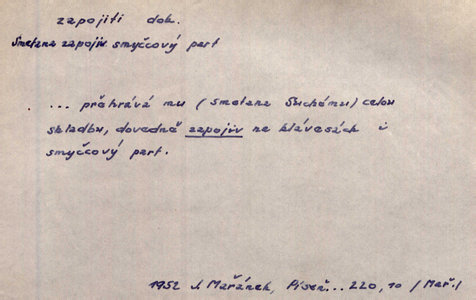 zapojiti dok.
Smetana zapojiv smyčcový part
... přehrává mu (Smetana Suchému) celou
skladbu, dovedně zapojiv na klávesách i
smyčcový part.
1952 J. Mařánek, Píseň... 220, 10 /Mař./